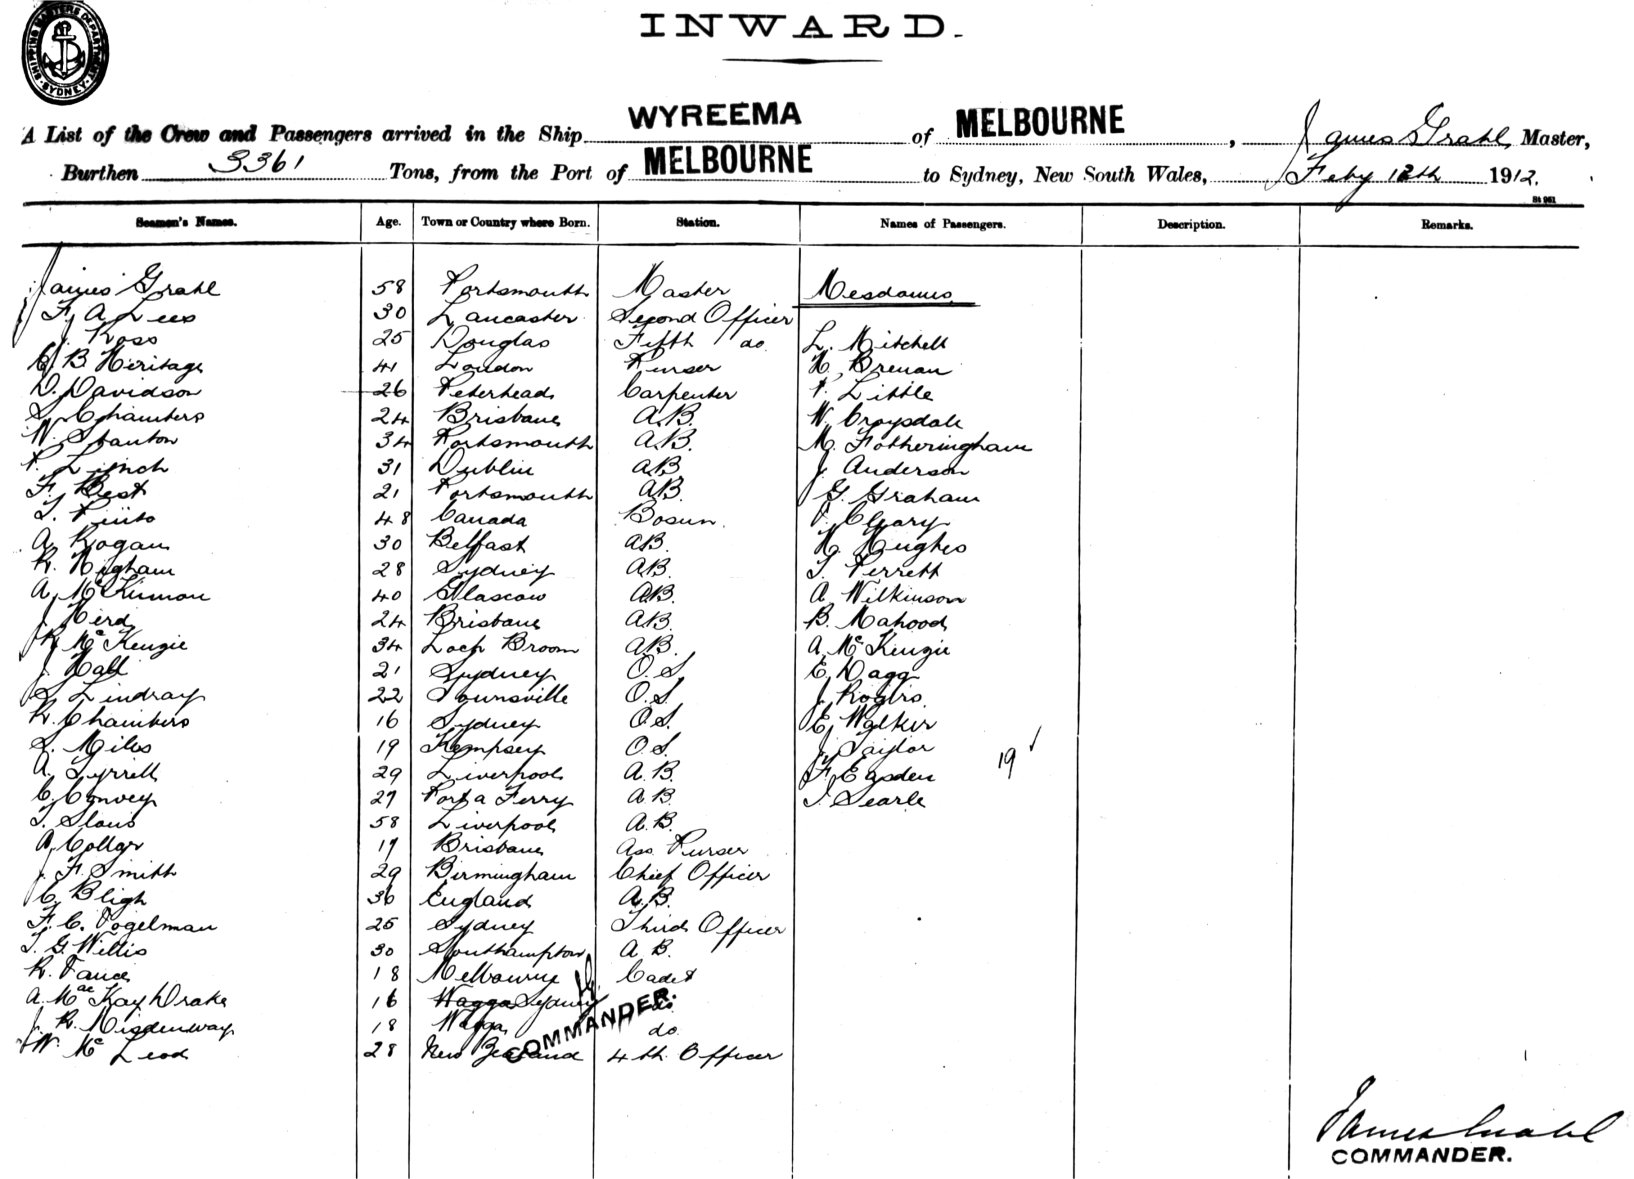 SHIPPING MASTERS DEPARTMENT SYDNEY
INWARD.
A List of the Crew and Passengers arrived in the Ship WYREEMA of MELBOURNE, James Grahl Master,
Burthen 3361 Tons, from the Port of MELBOURNE to Sydney, New South Wales, Feby 12th 1912.
St 961
Seamen's Names. Age. Town or Country where Born. Station. Names of Passengers. Description. Remarks.
James Grahl 58 Portsmouth Master Mesdames
F. A. Lees 30 Lancaster Second Officer
J. Ross 25 Douglas Fifth do. L. Mitchell
C. B. Heritage 41 London Purser H. Brenan
D. Davidson 26 Peterhead Carpenter P. Little
S. Chambers 24 Brisbane A.B. W. Croysdale
W. Stanton 34 Portsmouth A.B. M. Fotheringham
P. Lynch 31 Dublin A.B. J. Anderson
F. Best 21 Portsmouth A.B. G. Graham
T. 48 Canada Bosun. Cleary
A. Hogan 30 Belfast A.B. H. Hughes
R. Higham 28 Sydney A.B. T. Perrett
A. McKinnon 40 Glascow A.B. A. Wilkinson
J. Herd 24 Brisbane A.B. B. Mahood
R. McKenzie 34 Loch Broom A.B. A. McKenzie
J. Hall 21 Sydney O.S. E. Wagg
S. Lindray 22 Townsville O.S. J. Rogers
R. Chambers 16 Sydney O.S. E. Walker
S. Miles 19 Kempsey O.S. J. Taylor 19
A. Tyrrell 29 Liverpool A.B. F. Easden
C. Convey 27 Porta Ferry A.B. T. Searle
T. Slous 58 Liverpool A.B.
A. 19 Brisbane Ass. Purser
J. F. Smith 29 Birmingham Chief Officer
C. Bligh 36 England A.B.
F. C. Vogelman 25 Sydney Third Officer
T. G. Willis 30 Southampton A.B.
R. Vance 18 Melbourne Cadet
A. MacKay Drake 16 Wagga Sydney do.
J. R. 18 Wagga do.
W. McLeod 28 New Zealand 4th Officer
COMMANDER.
James Grahl
COMMANDER.